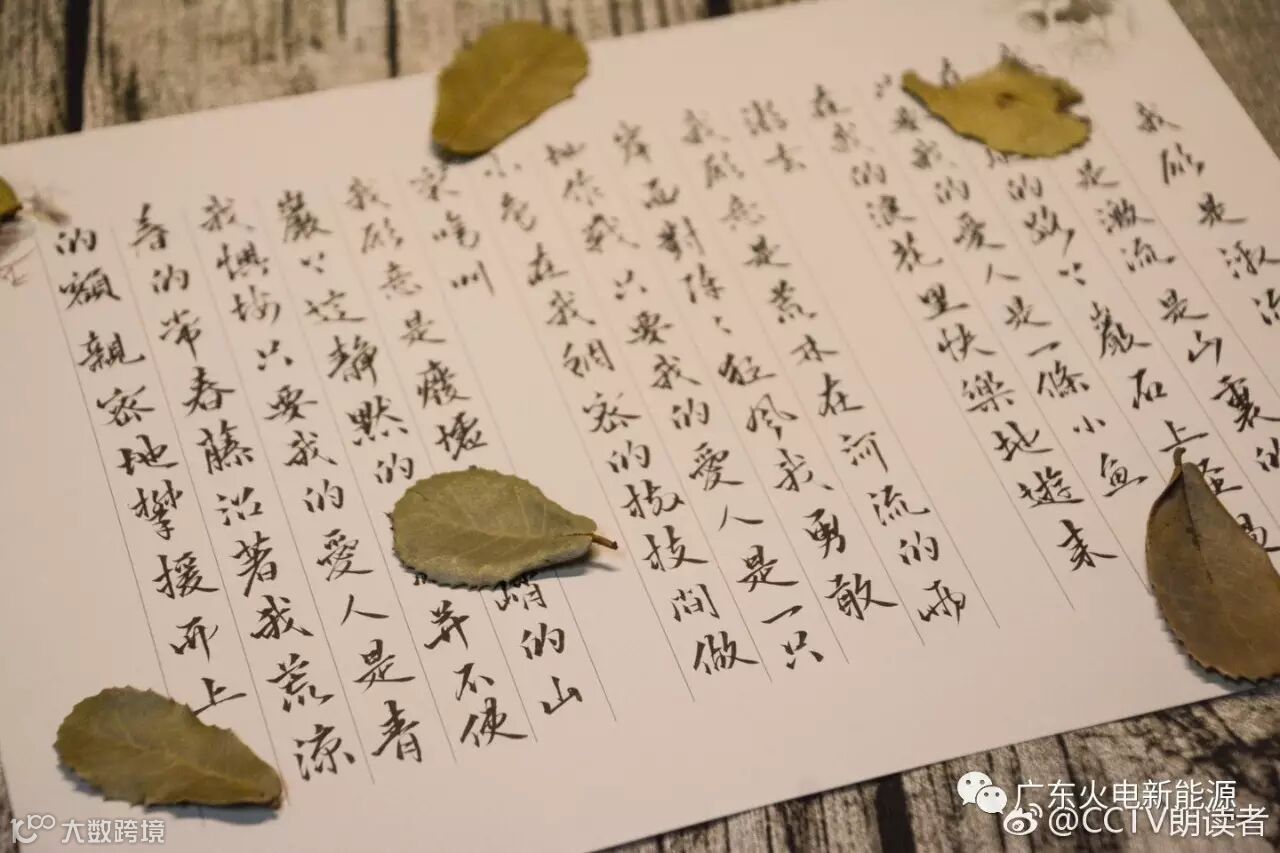 我願是激流
是激流是山裏的
的路丶丶巖石上經過
只要我的愛人是一條小魚
在我的浪花里快樂地遊來
游去
我願意是荒林在河流的兩
岸面對陣丶丶狂風我勇敢
地作戰只要我的愛人是一只
小鳥在我稠密的樹枝間做
窠鳴叫
我願意是廢墟峭的山
巖丶丶這靜默的并不使
我懊惱只要我的愛人是青
春的常春藤沿著我荒涼
的額親密地攀援而上
广东火电新能源
@CCTV朗读者
大数跨境